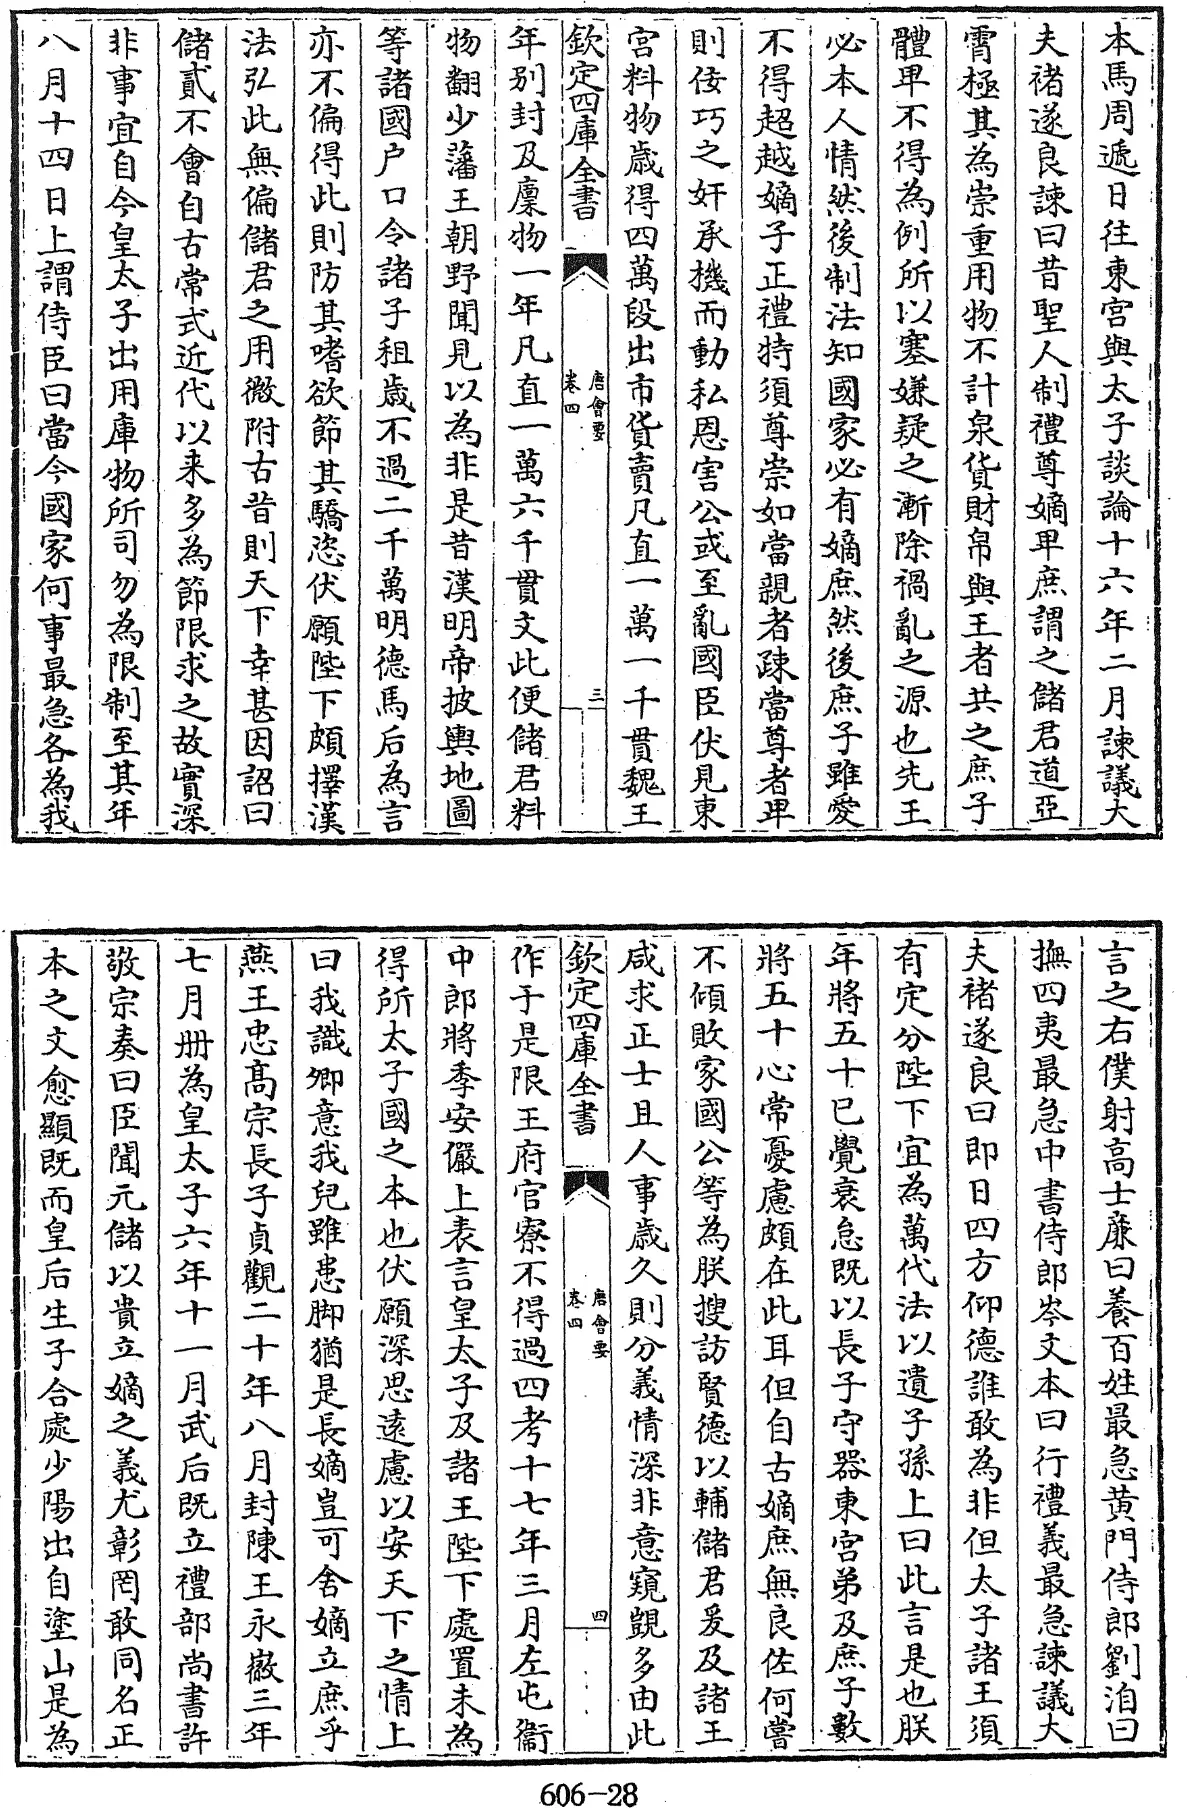 本馬周遞日往東宮與太子談論十六年二月諫議大
夫褚遂良諫曰昔聖人制禮尊嫡卑庶謂之儲君道亞
霄極其為崇重用物不計泉貨財帛與王者共之庶子
體卑不得為例所以塞嫌疑之漸除禍亂之源也先王
必本人情然後制法知國家必有嫡庶然後庶子雖愛
不得超越嫡子正禮特須尊崇如當親者疎當尊者卑
則佞巧之奸承機而動私恩害公或至亂國臣伏見東
宮料物歲得四萬段出市貨賣凡直一萬一千貫魏王
欽定四庫全書
唐會要
卷四
三
年别封及廩物一年凡直一萬六千貫文此便儲君料
物翻少藩王朝野聞見以為非是昔漢明帝披輿地圖
等諸國户口令諸子租歲不過二千萬明德馬后為言
亦不偏得此則防其嗜欲節其驕恣伏願陛下頗擇漢
法弘此無偏儲君之用微附古昔則天下幸甚因詔曰
儲貳不會自古常式近代以來多為節限求之故實深
非事宜自今皇太子出用庫物所司勿為限制至其年
八月十四日上謂侍臣曰當今國家何事最急各為我
言之右僕射高士廉曰養百姓最急黄門侍郎劉洎曰
撫四夷最急中書侍郎岑文本曰行禮義最急諫議大
夫褚遂良曰即日四方仰德誰敢為非但太子諸王須
有定分陛下宜為萬代法以遺子孫上曰此言是也朕
年將五十已覺衰怠既以長子守器東宮弟及庶子數
將五十心常憂慮頗在此耳但自古嫡庶無良佐何嘗
不傾敗家國公等為朕搜訪賢德以輔儲君爰及諸王
咸求正士且人事歲久則分義情深非意窺覬多由此
欽定四庫全書
唐會要
卷四
四
作于是限王府官寮不得過四考十七年三月左屯衞
中郎將季安儼上表言皇太子及諸王陛下處置未為
得所太子國之本也伏願深思遠慮以安天下之情上
曰我識卿意我兒雖患脚猶是長嫡豈可舍嫡立庶乎
燕王忠髙宗長子貞觀二十年八月封陳王永徽三年
七月册為皇太子六年十一月武后既立禮部尚書許
敬宗奏曰臣聞元儲以貴立嫡之義尤彰罔敢同名正
本之文愈顯既而皇后生子合處少陽出自塗山是為
606-28